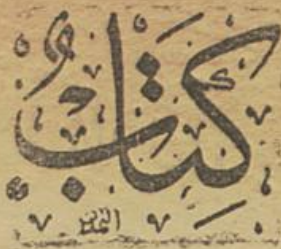 كِتَابُ